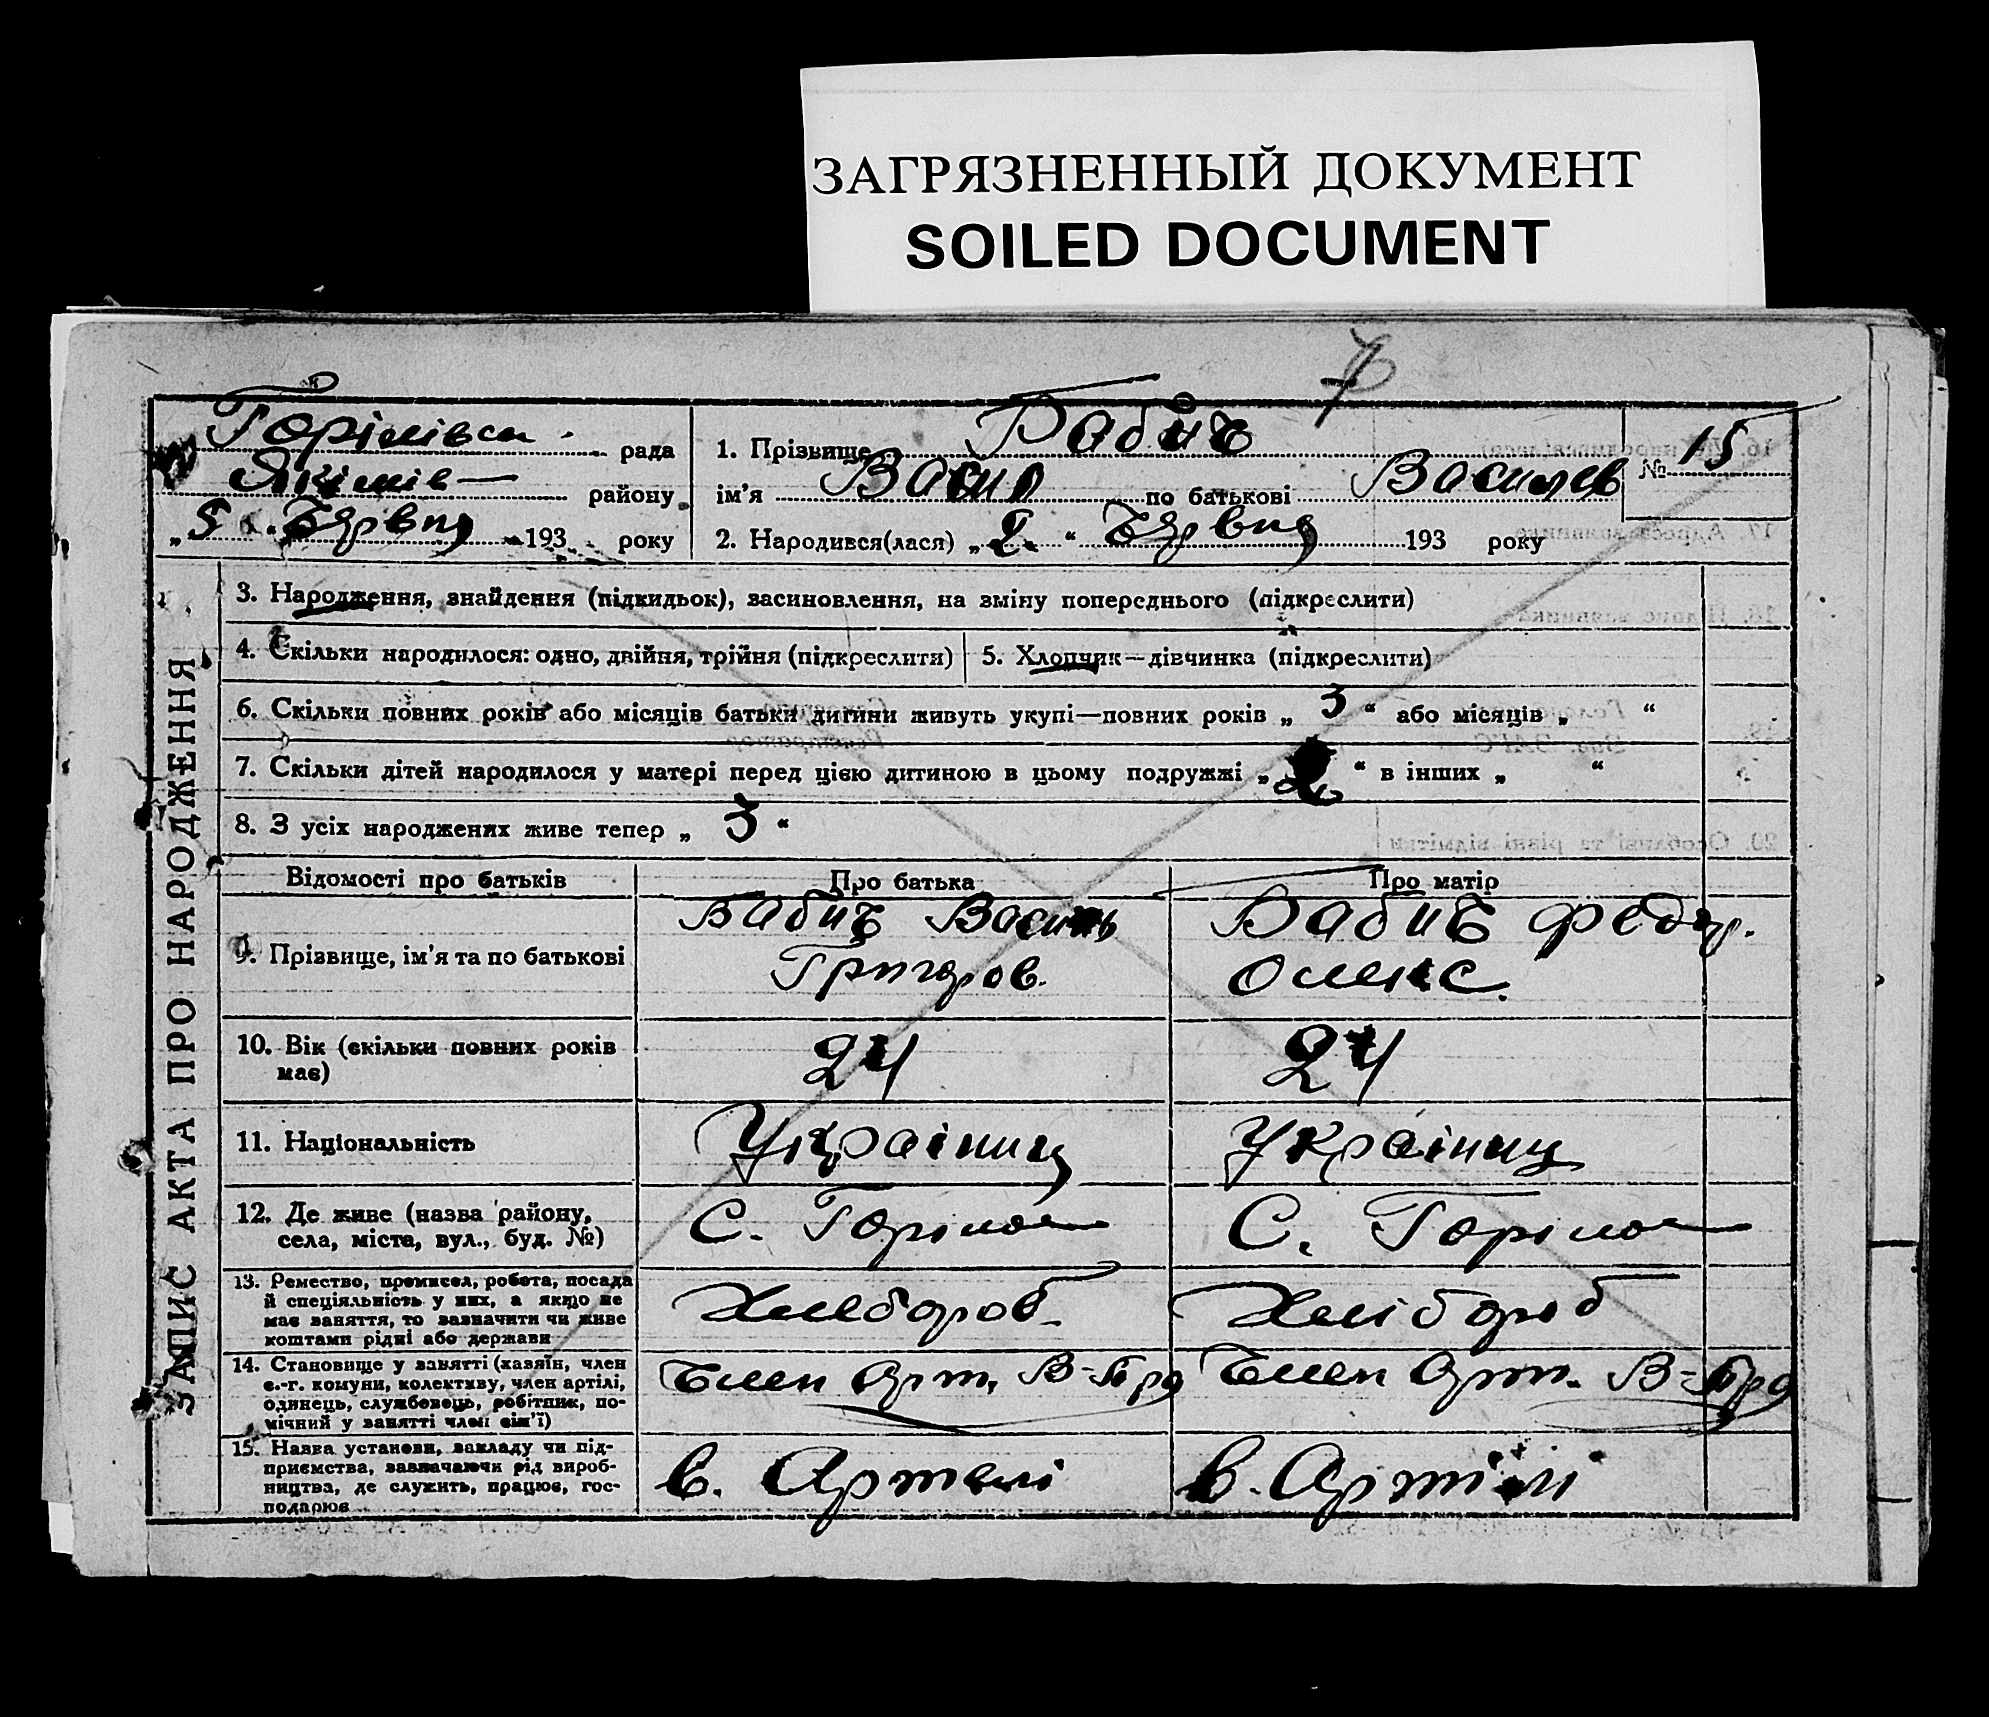 ЗАГРЯЗНЕННЫЙ ДОКУМЕНТ
SOILED DOCUMENT
7
Горілівсн. рада
Якимів— району
„5 Червня 193 року
1. Прізвище Бабич
ім'я Васил по батькові Василев
№ 15
2. Народився(лася) „ “ Червня 193 року
ЗАПИС АКТА ПРО НАРОДЖЕННЯ
3. Народження, знайдення (підкидьок), засиновлення, на зміну попереднього (підкреслити)
4. Скільки народилося: одно, двійня, трійня (підкреслити)
5. Хлопчик—дівчинка (підкреслити)
6. Скільки повних років або місяців батьки дитини живуть укупі—повних років „ 3 “ або місяців „ “
7. Скільки дітей народилося у матері перед цією дитиною в цьому подружжі „ 2 “ в інших „ “
8. З усіх народжених живе тепер „ 3 “
Відомості про батьків
Про батька
Про матір
9. Прізвище, ім'я та по батькові
Бабич Василь
Григоров.
Бабич Федор.
Олекс.
10. Вік (скільки повних років
має)
24
24
11. Національність
Українец
Українец
12. Де живе (назва району,
села, міста, вул., буд. №)
С. Горіло—
С. Горіло—
13. Ремество, промисел, робота, посада
й спеціяльність у них, а якщо не
має заняття, то зазначити чи живе
коштами рідні або держави
Хлебороб.
Хлібороб
14. Становище у занятті (хазяїн, член
с.-г. комуни, колективу, член артілі,
одинець, службовець, робітник, по-
мічний у занятті член сім'ї)
Член Арт.
Член Арт.
15. Назва установи, закладу чи під-
приємства, зазначаючи рід вироб-
ництва, де служить, працює, гос-
подарює
в. Артелі
в. Артілі